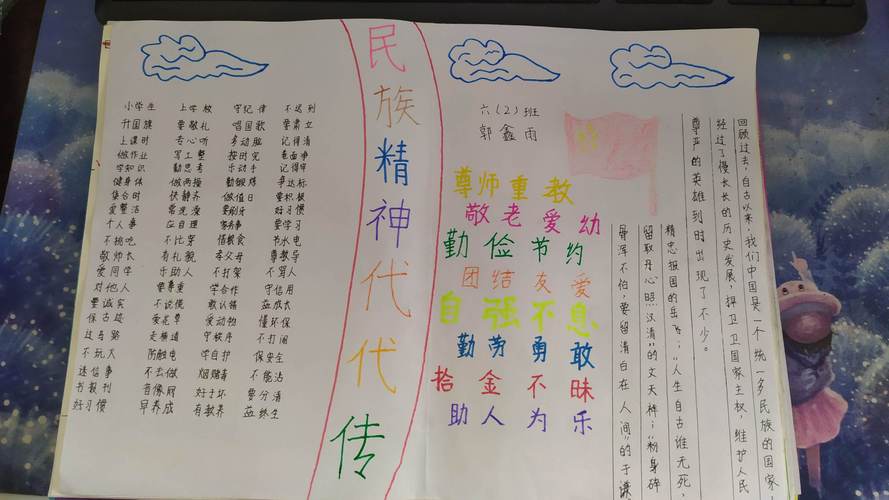 小学生 上学校 守纪律 不迟到
升国旗 要敬礼 唱国歌 要肃立
上课时 专心听 多动脑 记得清
做作业 写工整 按时完 卷面净
学知识 勤思考 乐动手 记得牢
健身体 做两操 勤锻炼 争达标
集合时 快静齐 做值日 要积极
爱整洁 常洗澡 要刷牙 好习惯
个人事 应自理 家务事 要学习
不挑吃 不比穿 惜粮食 节水电
敬师长 有礼貌 孝父母 尊教导
爱同学 乐助人 不打架 不骂人
对他人 要尊重 学合作 守信用
要诚实 不说谎 敢认错 益成长
保古迹 爱花草 爱动物 懂环保
过马路 走横道 守秩序 不打闹
不玩火 防触电 学自护 保安全
迷信事 不去做 烟赌毒 不能沾
书报刊 好于坏 要分清
好习惯 早养成 有教养 益终生
民族精神代代传
六(2)班
郭鑫雨
尊师重教
敬老爱幼
勤俭节约
团结友爱
自强不息
勤劳勇敢
拾金不昧
助人为乐
回顾过去,自古以来,我们中国是一个统一多民族的国家
经过了慢长长的历史发展,捍卫卫国家主权,维护人民
尊严的英雄到时出现了不少。
精忠报国的岳飞;“人生自古谁无死,
留取丹心照汉清”的文天祥;“粉身碎
骨浑不怕,要留清白在人间”的于谦